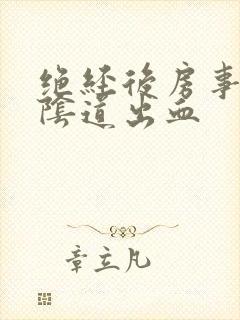 绝经後房事
陰道出血
章立凡